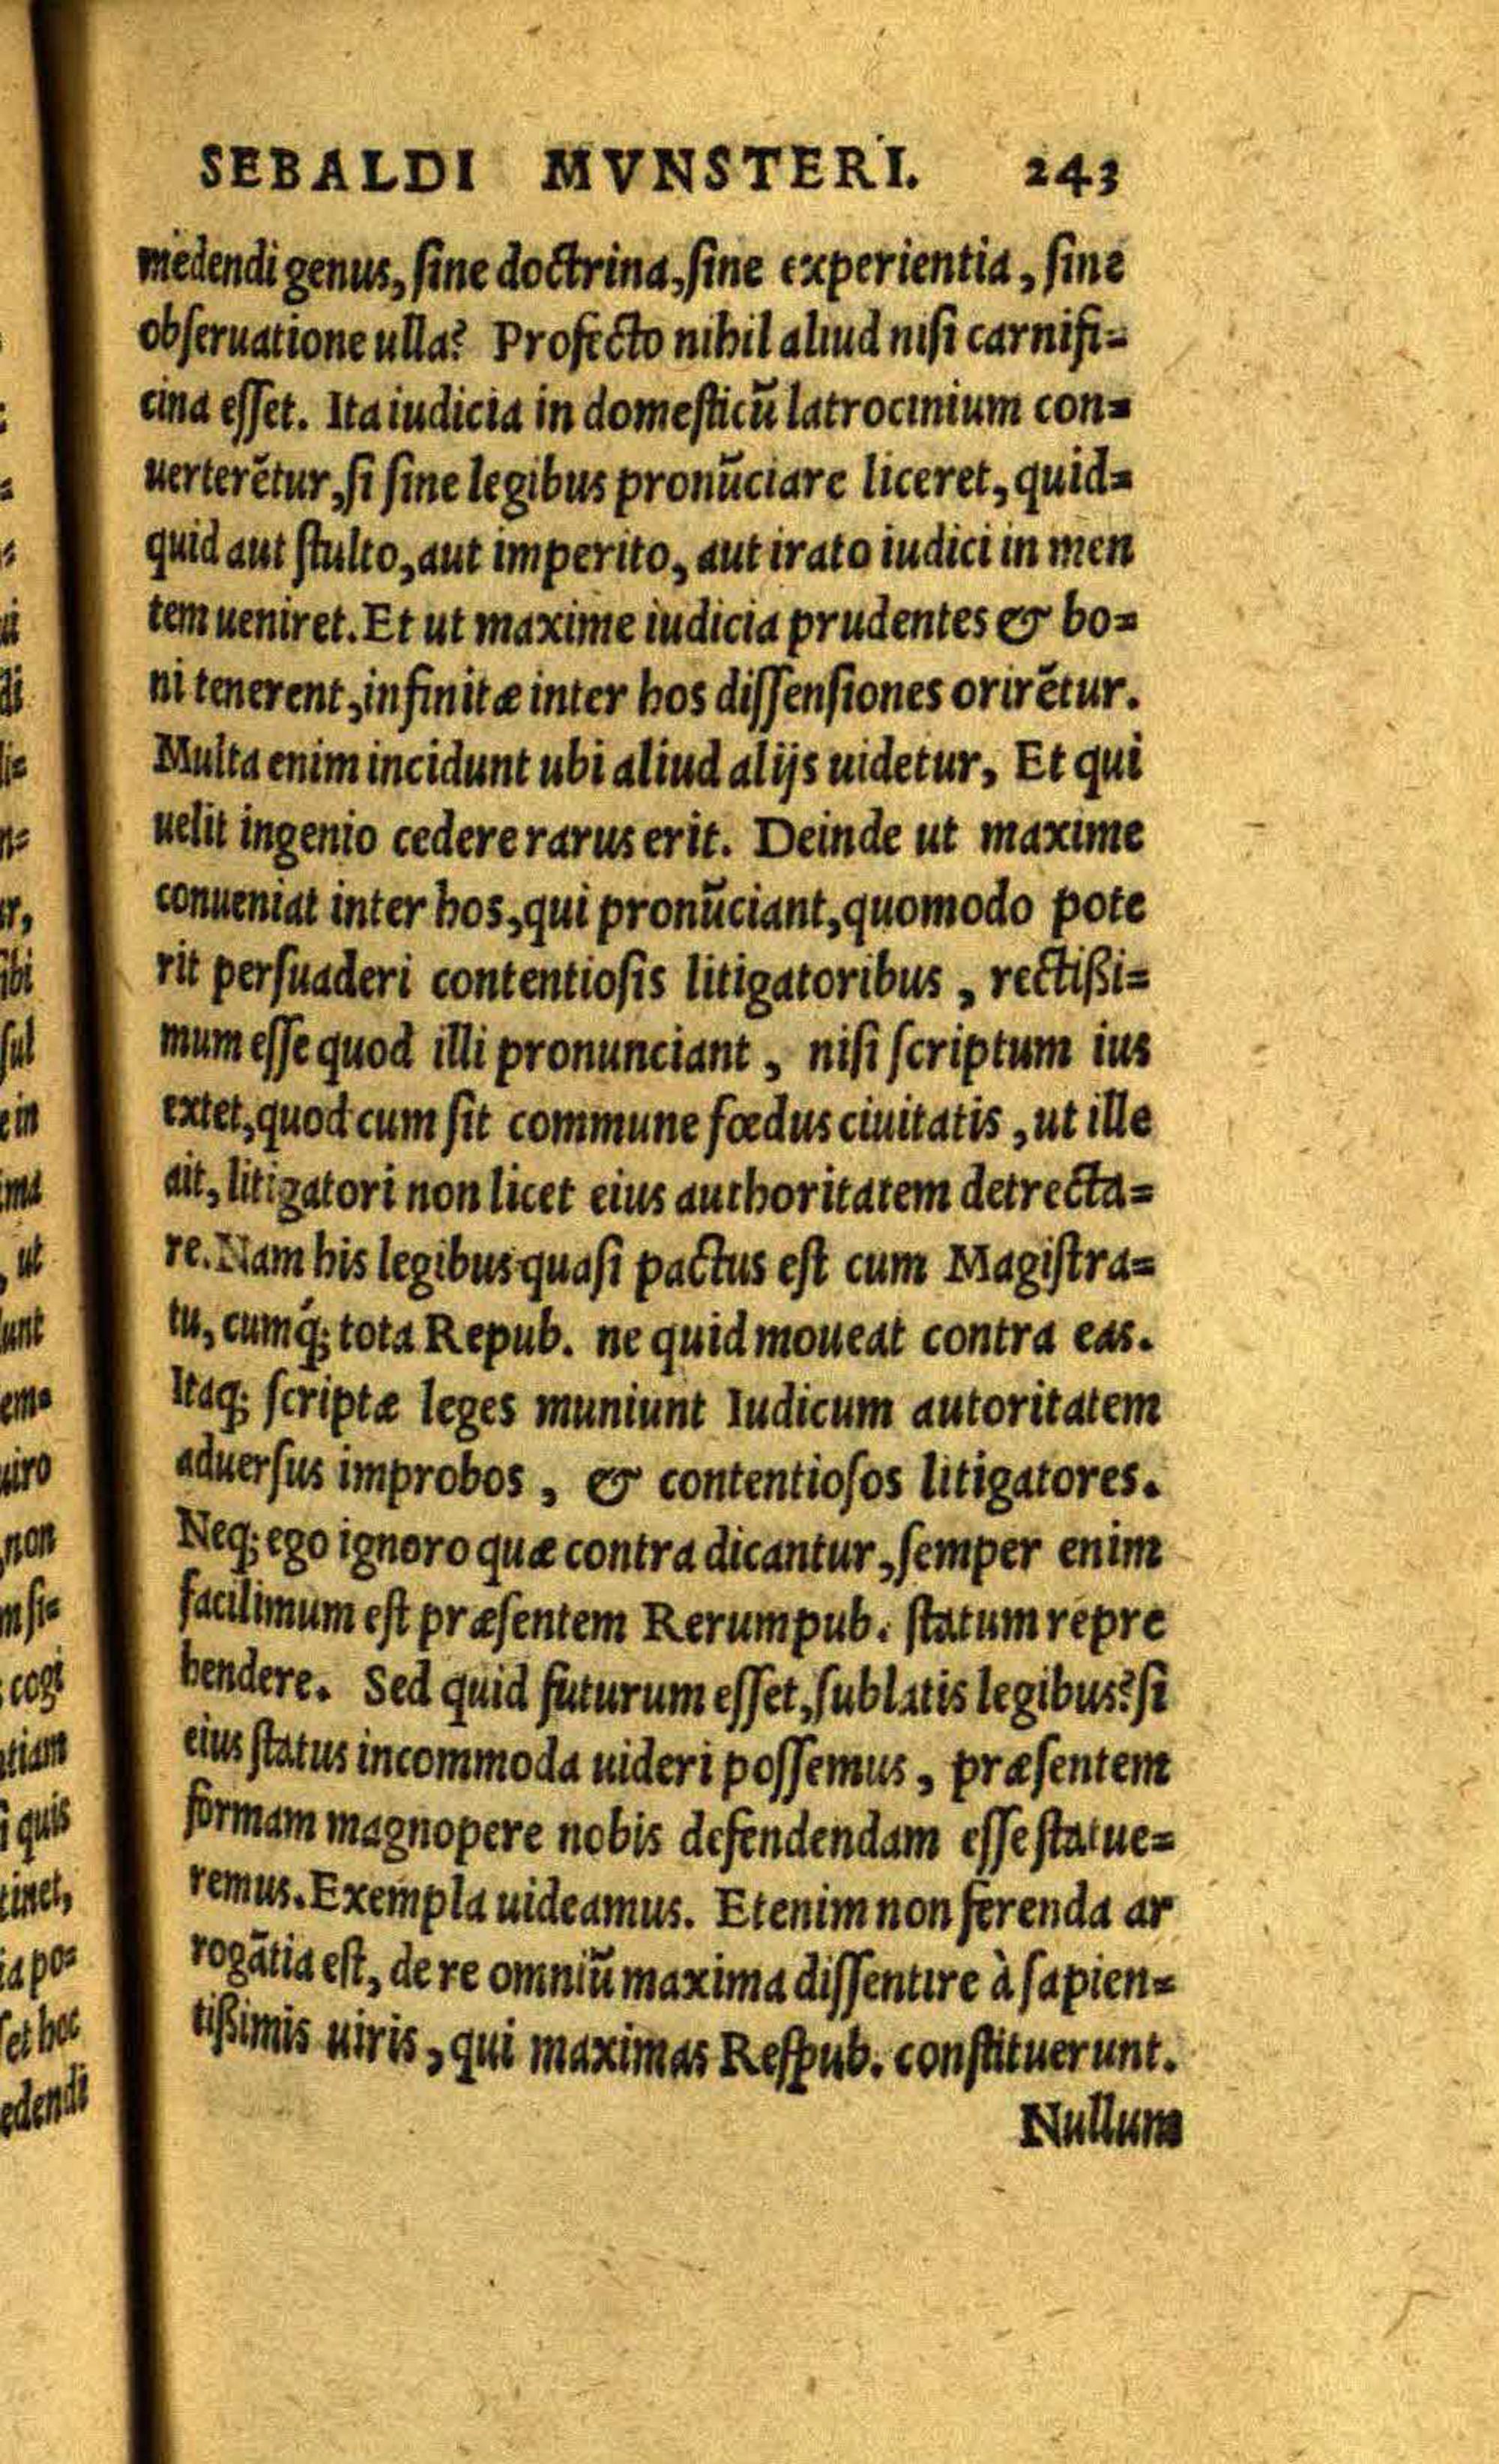 SEBALDI MVNSTERI. 243
medendi genus, ſine doctrina, ſine experientia, ſine
obſeruatione ulla? Profecto nihil aliud niſi carnifi=
cina eſſet. Ita iudicia in domeſticũ latrocinium con=
uerterẽtur, ſi ſine legibus pronũciare liceret, quid=
quid aut ſtulto, aut imperito, aut irato iudici in men
tem ueniret. Et ut maxime iudicia prudentes & bo=
ni tenerent, infinitæ inter hos diſſenſiones orirẽtur.
Multa enim incidunt ubi aliud alijs uidetur, Et qui
uelit ingenio cedere rarus erit. Deinde ut maxime
conueniat inter hos, qui pronũciant, quomodo pote
rit perſuaderi contentioſis litigatoribus, rectißi=
mum eſſe quod illi pronunciant, niſi ſcriptum ius
extet, quod cum ſit commune fœdus ciuitatis, ut ille
ait, litigatori non licet eius authoritatem detrecta=
re. Nam his legibus quaſi pactus eſt cum Magiſtra=
tu, cumq́; tota Repub. ne quid moueat contra eas.
Itaq; ſcriptæ leges muniunt Iudicum autoritatem
aduerſus improbos, & contentioſos litigatores.
Neq; ego ignoro quæ contra dicantur, ſemper enim
facilimum eſt præſentem Rerumpub. ſtatum repre
hendere. Sed quid futurum eſſet, ſublatis legibus? ſi
eius ſtatus incommoda uideri poſſemus, præſentem
formam magnopere nobis defendendam eſſe ſtatue=
remus. Exempla uideamus. Etenim non ferenda ar
rogãtia eſt, de re omniũ maxima diſſentire à ſapien=
tißimis uiris, qui maximas Reſpub. conſtituerunt.
Nullum